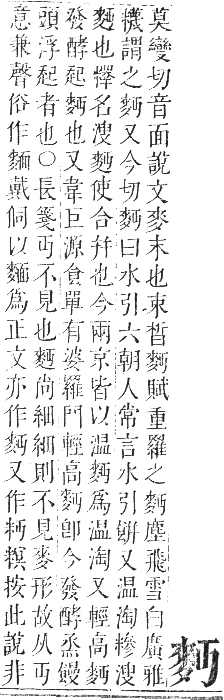 麪
莫變切音面說文麥末也束晳麪賦重羅之麪塵飛雪白廣雅
䊢謂之麪又今切麪曰水引六朝人常言水引餠又溫淘糝溲
麪也釋名溲麪使合幷也今兩京皆以溫麪爲溫淘又輕高麪
發酵起麪也又韋巨源食單有婆羅門輕高麪卽今發酵烝饅
頭浮起者也○長箋丏不見也麪尚細細則不見麥形故从丏
意兼聲俗作麵戴侗以麵爲正文亦作麫又作糆䊡按此說非